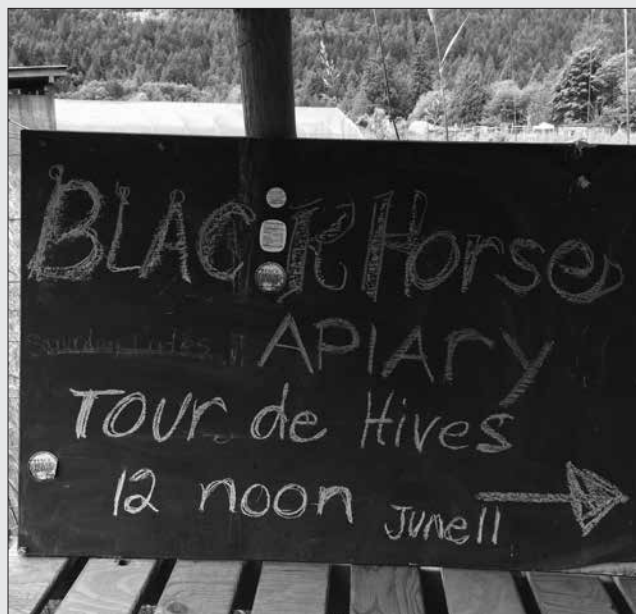 BLACK Horse
APIArY
Tour de Hives
12 noon June 11